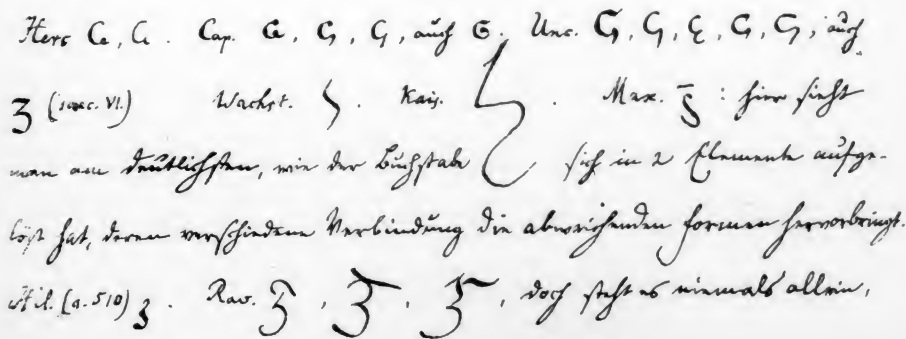 Herc G, G. Cap. G, G, G, auch G. Unc. G, G, G, G, G, auch
3 (saec. VI.) Wachst. . Kais. . Mar. : hier sieht
man am deutlichsten, wie der Buchstabe sich in 2 Elemente aufge-
löst hat, deren verschiedene Verbindung die abweichenden Formen hervorbringt.
Hil. (a. 510) 3. Rav. , , , doch steht es niemals allein,